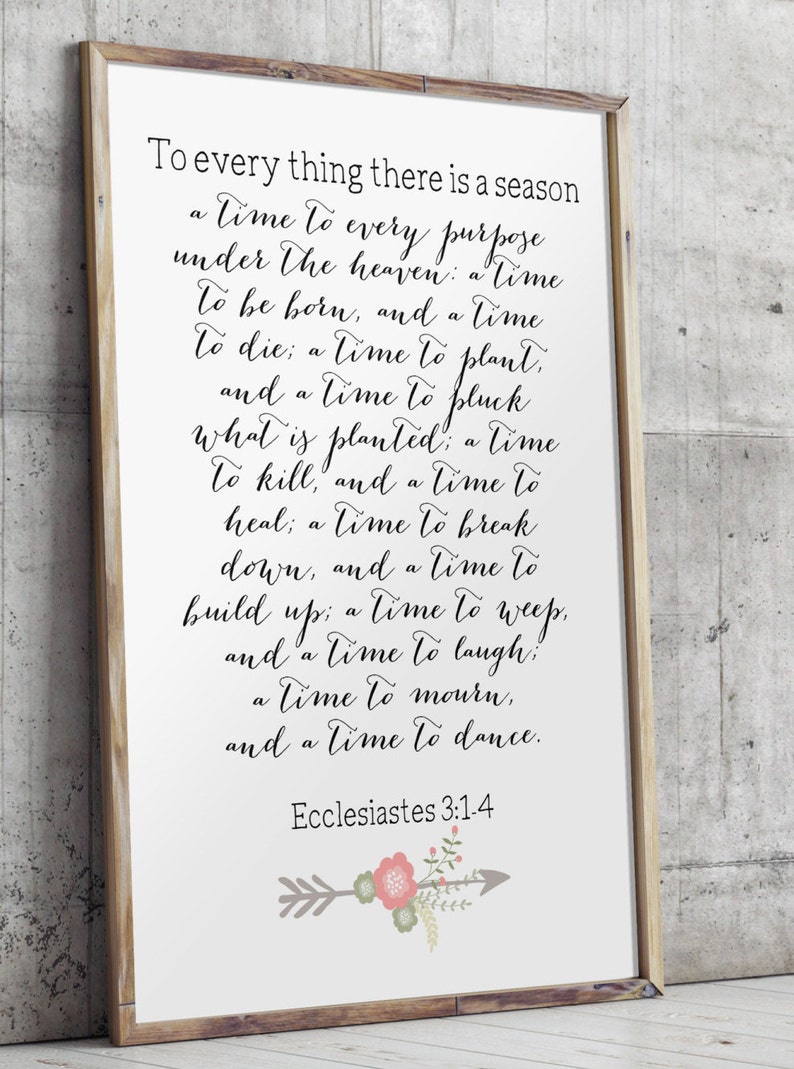 To every thing there is a season
a time to every purpose
under the heaven: a time
to be born, and a time
to die; a time to plant,
and a time to pluck
what is planted; a time
to kill, and a time to
heal; a time to break
down, and a time to
build up; a time to weep,
and a time to laugh;
a time to mourn,
and a time to dance.
Ecclesiastes 3:1-4